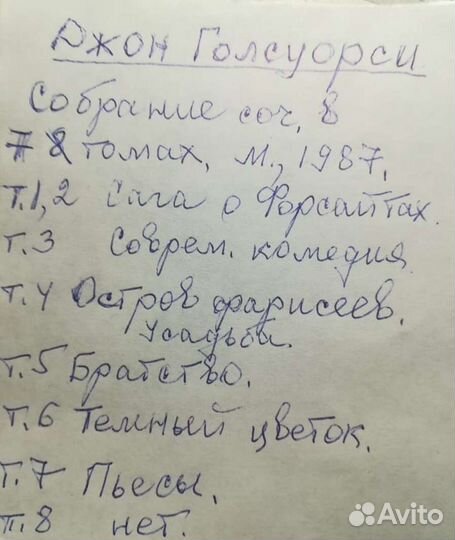 Джон Голсуорси
Собрание соч. в
7 8 томах, М., 1987.
т.1,2 Сага о Форсайтах.
т.3 Соврем. комедия
т.4 Остров фарисеев.
Усадьба.
т.5 Братство.
т.6 Темный цветок.
т.7 Пьесы.
т.8 нет.
Avito